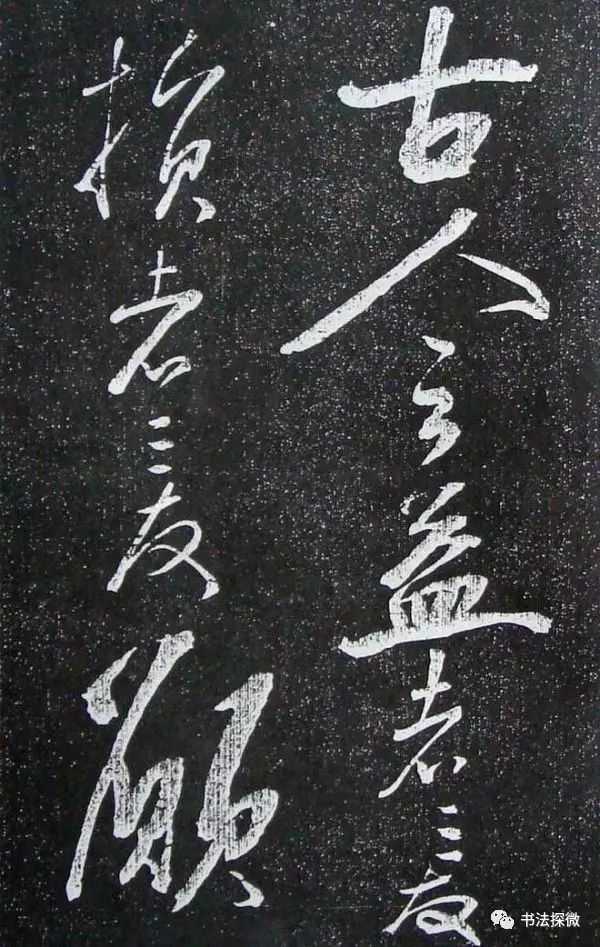 古人云益者三友
损者三友顾
书法探微